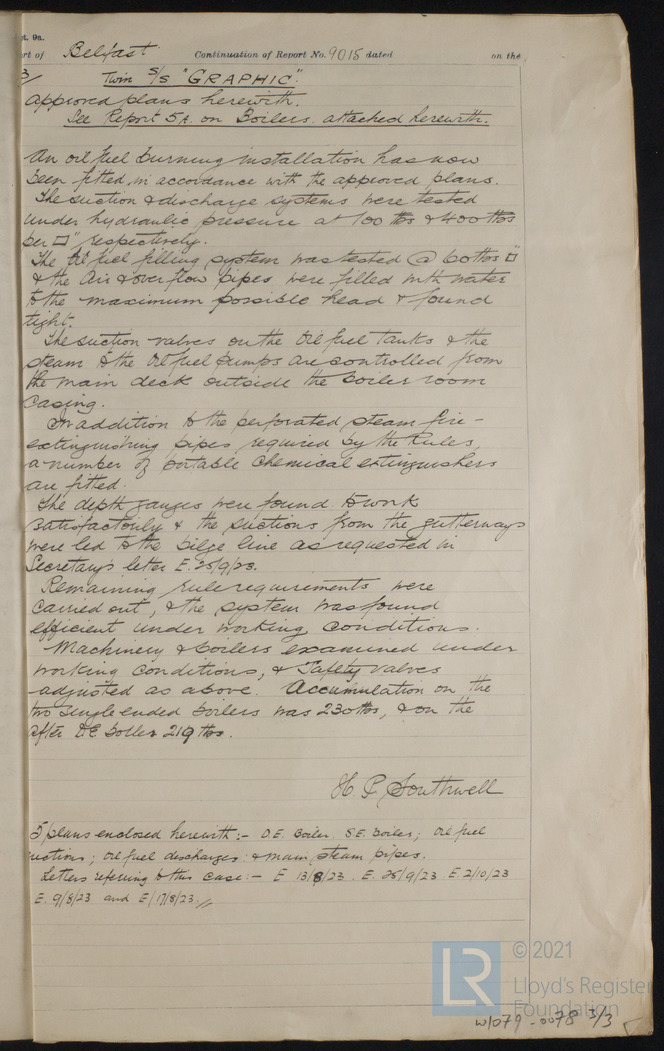 pt. 9a.
rt of Belfast Continuation of Report No. 9015 dated on the
3/ Twin S/S "GRAPHIC".
approved plans herewith.
See Report 5A. on Boilers. attached herewith.
An oil fuel burning installation has now
been fitted in accordance with the approved plans.
The suction & discharge systems were tested
under hydraulic pressure at 100 lbs & 400 lbs
per □", respectively.
The Oil fuel filling system was tested @ 60 lbs □"
& the Air & overflow pipes were filled with water
to the maximum possible head & found
tight.
The suction valves on the Oil fuel tanks & the
steam to the Oil fuel pumps are controlled from
the main deck outside the boiler room
casing.
In addition to the perforated steam fire-
extinguishing pipes required by the Rules,
a number of portable Chemical extinguishers
are fitted.
The depth gauges were found to work
satisfactorily & the suctions from the gutterways
were led to the bilge line as requested in
Secretary's letter E. 25/9/23.
Remaining rule requirements were
carried out, & the system was found
efficient under working conditions.
Machinery & boilers examined under
working conditions, & Safety valves
adjusted as above. Accumulation on the
two single ended boilers was 230 lbs, & on the
after DE boiler 219 lbs.
H P. Southwell
5 plans enclosed herewith:- D.E. Boiler. S.E. Boiler; Oil fuel
uctions; oil fuel discharges: & main steam pipes.
Letters referring to this case:- E 13/8/23. E. 25/9/23 E. 2/10/23
E. 9/8/23 and E/17/8/23.//
LR © 2021
Lloyd's Register
Foundation
W1079-0078 3/3